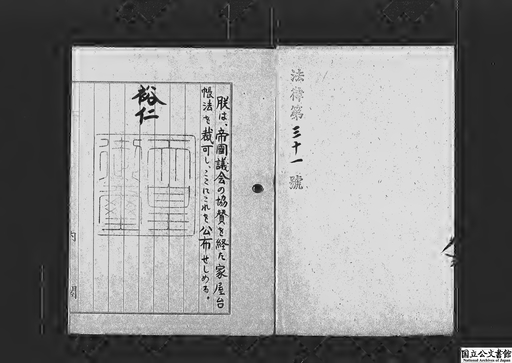 法律第三十一號
朕は、帝國議会の協賛を経た家屋台
帳法を裁可し、ここにこれを公布せしめる。
裕仁
天皇
御璽
内閣
国立公文書館
National Archives of Japan